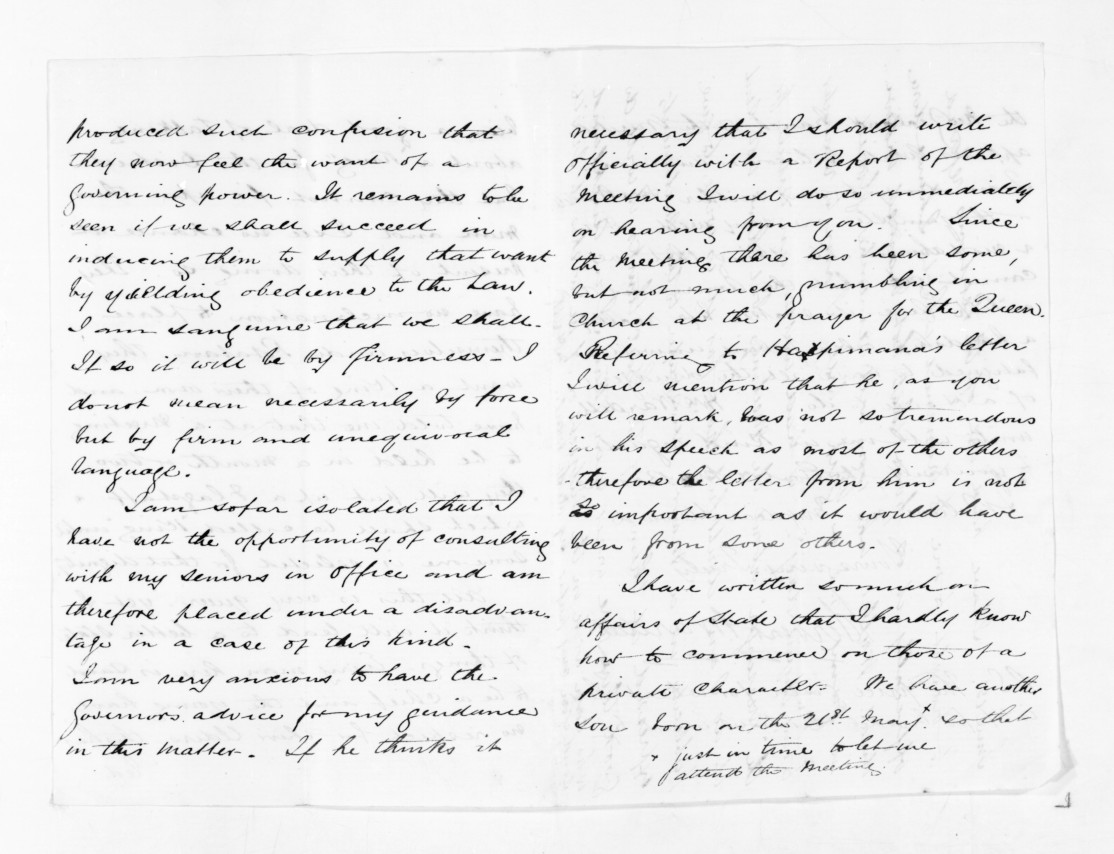 produced such confusion that
they now feel the want of a
Governing power. It remains to be
seen if we shall succeed in
inducing them to supply that want
by yieldding obedience to the Law.
I am sanguine that we shall.
If so it will be by firmness - I
do not mean necessarily by force
but by firm and unequivocal
language.
I am so far isolated that I
have not the opportunity of consulting
with my seniors in office and am
therefore placed under a disadvan-
tage in a case of this kind.
I am very anxious to have the
Governors advice for my guidance
in this matter. If he thinks it
necessary that I should write
Officially with a Report of the
Meeting I will do so immediately
on hearing from you. Since
the Meeting there has been some,
but not much, grumbling in
Church at the prayer for the Queen.
Referring to Hapimana's letter
I will mention that he, as you
will remark, was not so tremendous
in his speech as most of the others
- therefore the letter from him is not
so important as it would have
been from some others.
I have written so much on
affairs of State that I hardly know
how to commence on those of a
private character. We have another
Son born on the 21st May x so that
x just in time to let me
attend the Meeting.